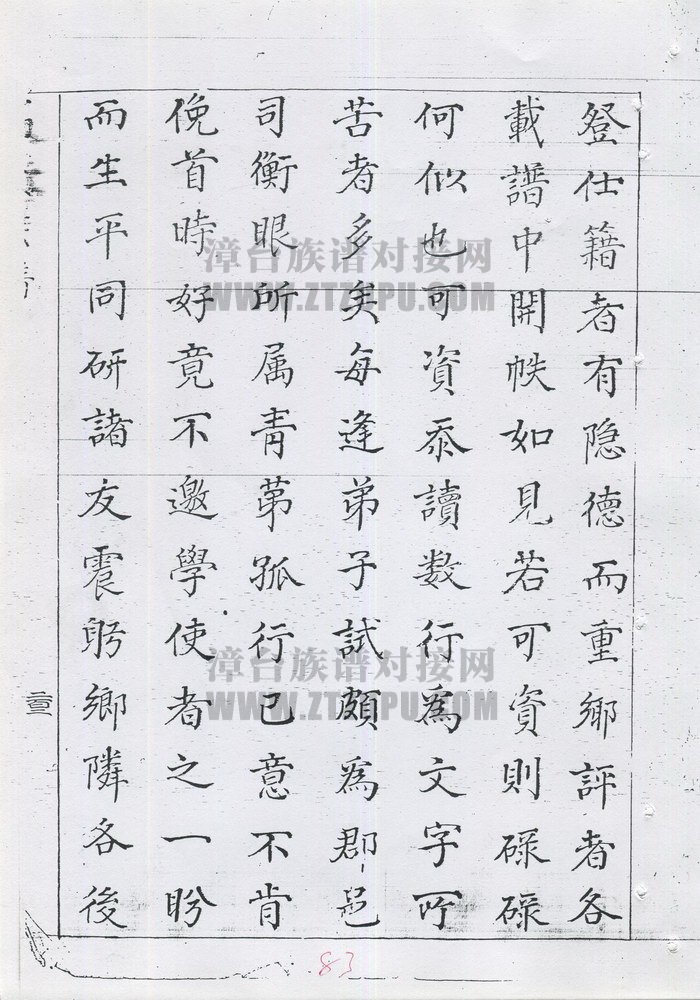 登仕籍者有隐德而重鄉評者各
載譜中開帙如見若可資則碌碌
何似也可資忝讀数行為文字所
苦者多矣每逢弟子試頗為郡邑
司衡眼所属青苐孤行已意不肯
俛首時好竟不邀學使者之一盻
而生平同研諸友震躬鄉隣各後
漳台族谱对接网
WWW.ZTZUPU.COM
漳台族谱对接网
WWW.ZTZUPU.COM
83